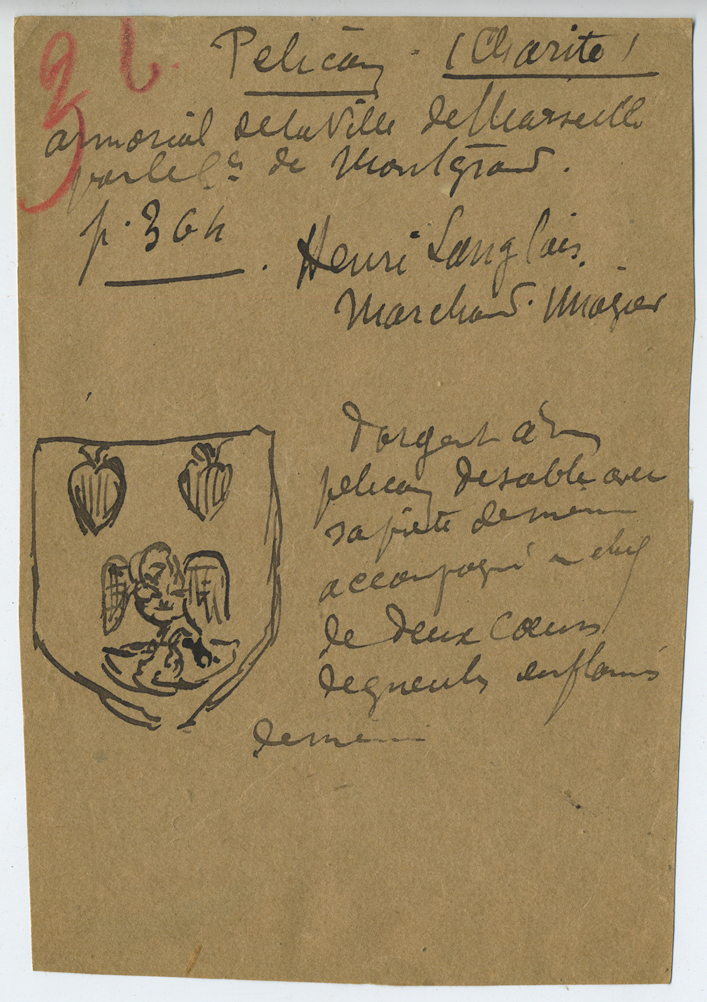 Pelican (Charité)
armorial de la Ville de Marseille
par le Cte de Montgrand.
p. 364.
Henri Langlois.
Marchand
D'argent à un
pelican de sable avec
sa piété de même
accompagné en chef
de deux Coeurs
de gueules enflamés
de même